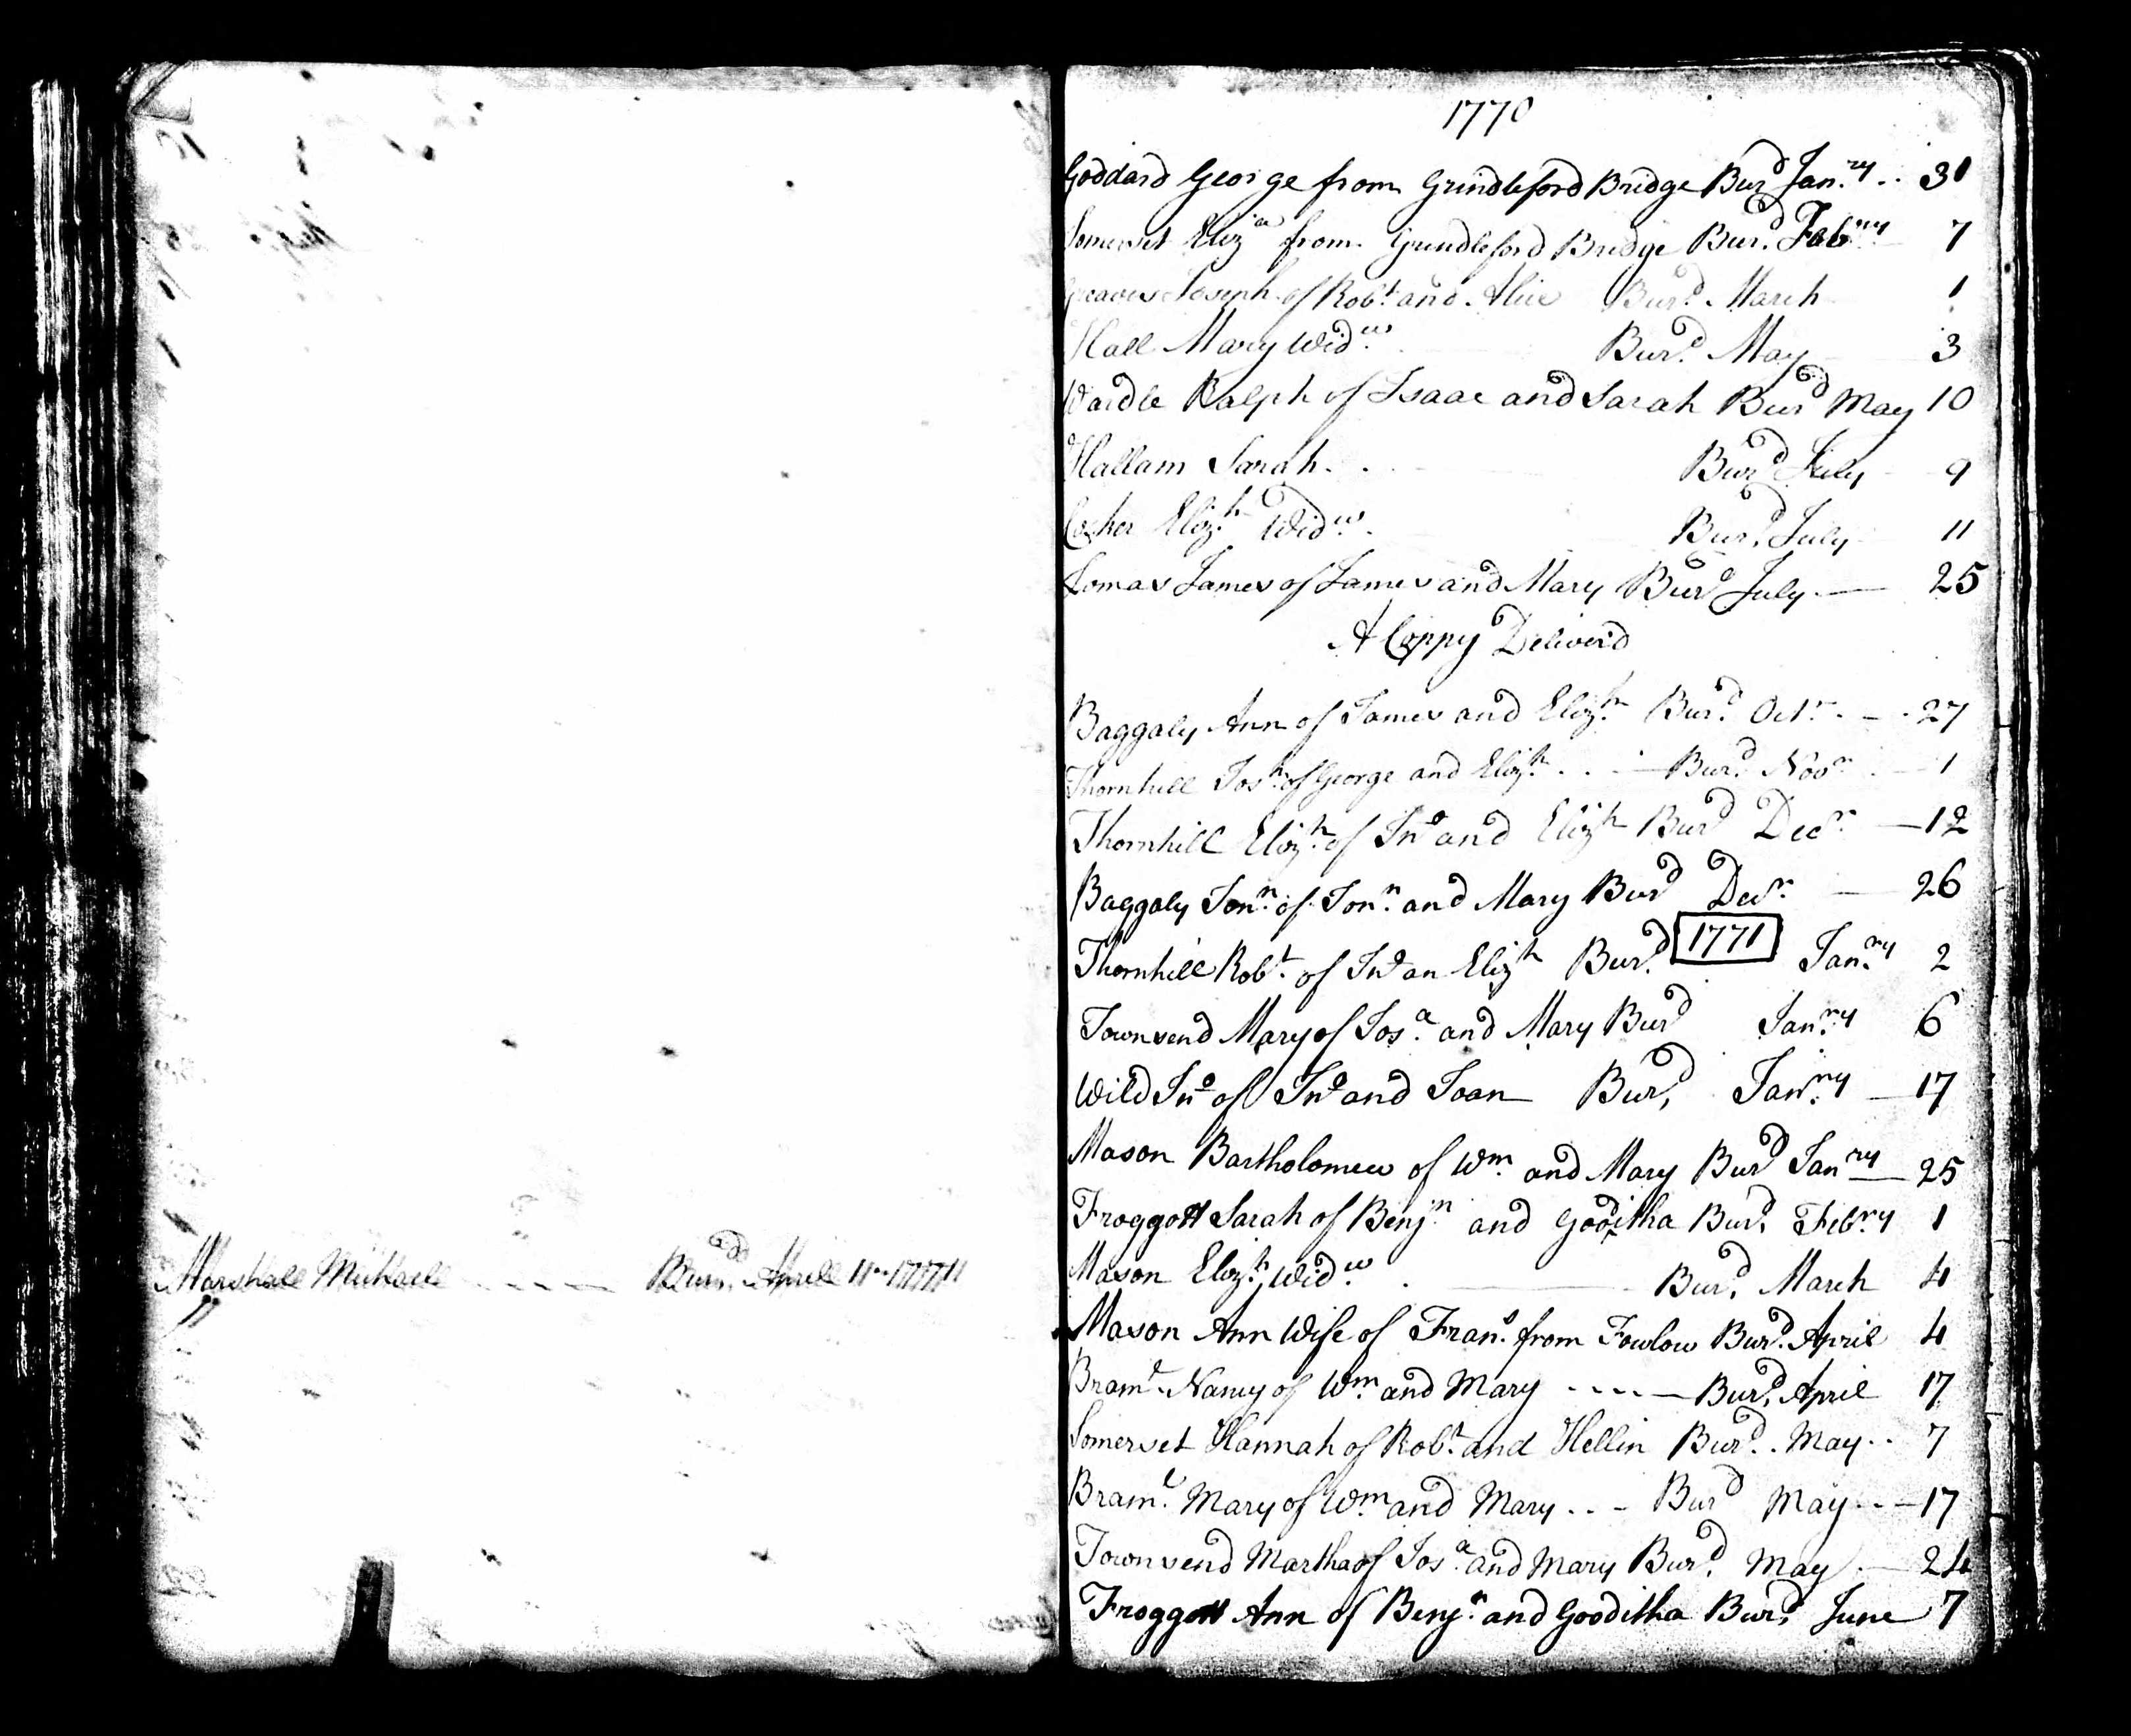 Marshall Michaell - - - - Bur.d Aprill 11th 1771
1770
Goddard George from Grindleford Bridge Bur.d Jan.ry .. 31
Somerset Eliz.a from Grindleford Bridge Bur.d Feb.ry 7
Greaves Joseph of Rob.t and Alice Bur.d March 1
Hall Mary Wid.w Bur.d May 3
Wardle Ralph of Isaac and Sarah Bur.d May 10
Hallam Sarah Bur.d July 9
Cocker Eliz.h Wid.w Bur.d July 11
Lomas James of James and Mary Bur.d July — 25
A Coppy Deliver'd
Baggaly Ann of James and Eliz.h Bur.d Oct.r - 27
Thornhill Jos.h of George and Eliz.h .. Bur.d Nov.r 1
Thornhill Eliz.h of Jn.o and Eliz.h Bur.d Dec.r — 12
Baggaly Jon.n of Jon.n and Mary Bur.d Dec.r — 26
Thornhill Rob.t of Jn.o an Eliz.h Bur.d 1771 Jan.ry 2
Townsend Mary of Jos.a and Mary Bur.d Jan.ry 6
Wild Jn.o of Jn.o and Joan Bur.d Jan.ry — 17
Mason Bartholomew of W.m and Mary Bur.d Jan.ry — 25
Froggott Sarah of Benj.n and Gooditha Bur.d Feb.ry 1
Mason Eliz.h Wid.w — Bur.d March 4
Mason Ann Wife of Fran.s from Fowlow Bur.d April 4
Bram.l Nancy of W.m and Mary - - - - Bur.d April 17
Somerset Hannah of Rob.t and Hellin Bur.d . May .. 7
Bram.l Mary of W.m and Mary .. - Bur.d May .. — 17
Townsend Martha of Jos.a and Mary Bur.d May — 24
Froggott Ann of Benj.n and Gooditha Bur.d June 7